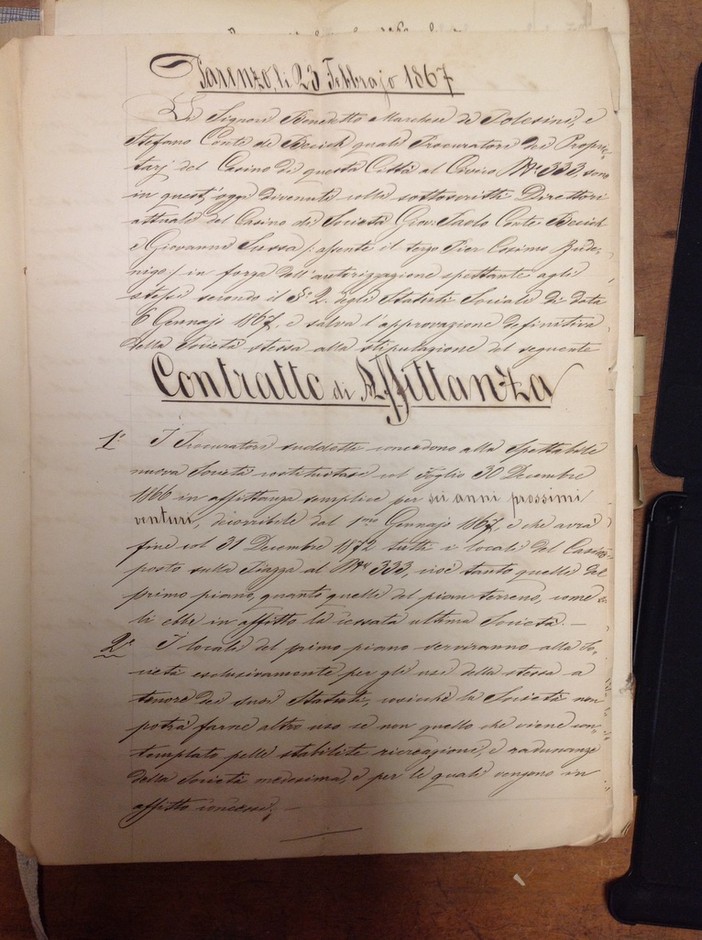 Parenzo, li 23 Febbrajo 1867
Li Signori Benedetto Marchese de Polesini, e
Stefano Conte de Becich quali Procuratori dei Proprie-
tarj del Casino di questa Città al Civico Nro 333 sono
in quest'oggi divenuti colli sottoscritti Direttori
attuali del Casino di Società Giov. Paolo Conte Becich
e Giovanni Sussa /: assente il terzo Pier Cosimo
:/ in forza dell'autorizzazione spettante agli
stessi secondo il § 2. degli Statuti Sociali di data
6 Gennajo 1867, e salva l'approvazione definitiva
della Società stessa alla stipulazione del seguente
Contratto di Affittanza
1° I Procuratori suddetti concedono alla Spettabile
nuova Società costituitasi col Foglio 30 Decembre
1866 in affittanza semplice per sei anni prossimi
venturi, decorribili dal 1mo Gennajo 1867, e che avrà
fine col 31 Decembre 1872 tutti i locali del Casino
posto sulla Piazza al Nro 333, cioè tanto quelli del
primo piano, quanto quelli del pian terreno, come
li ebbe in affitto la cessata ultima Società. —
2° I locali del primo piano serviranno alla So-
cietà esclusivamente per gli usi della stessa a
tenore dei suoi Statuti, cosichè la Società non
potrà farne altro uso se non quello che viene con-
templato pelle stabilite ricreazioni, e radunanze
della Società medesima, e per le quali vengono in
affitto concessi. —